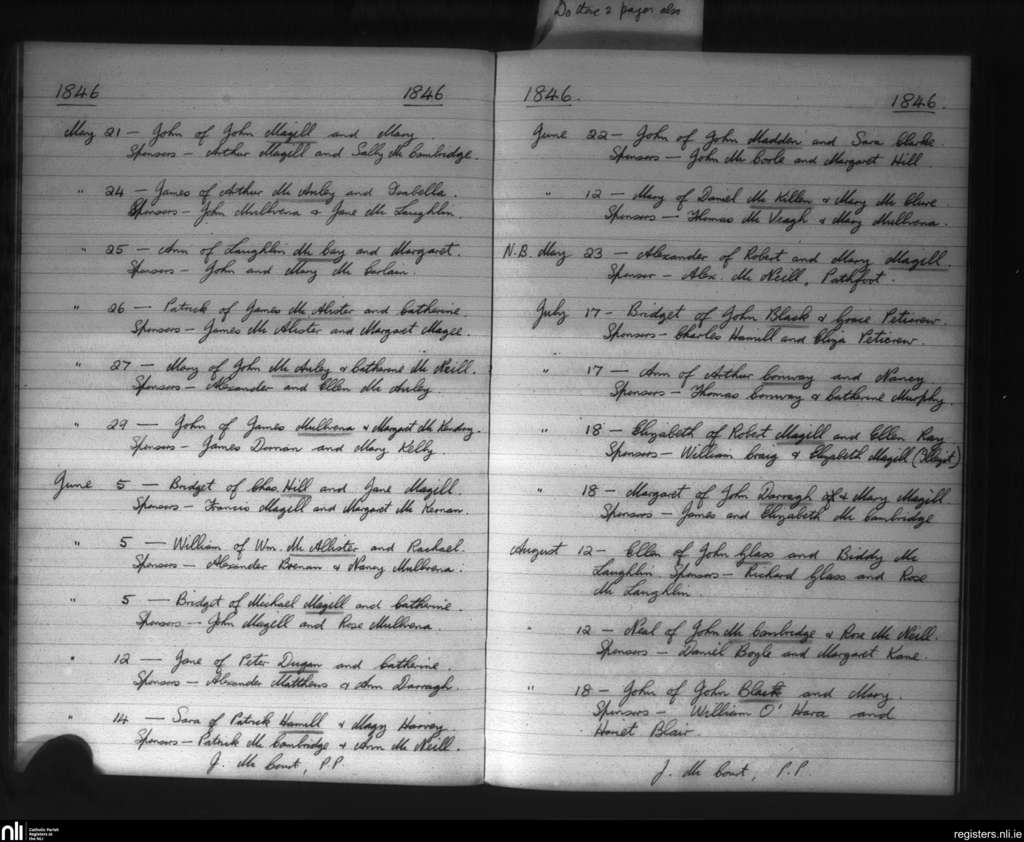 Do these 2 pages also
1846 1846
May 21 — John of John Magill and Mary.
Sponsors — Arthur Magill and Sally Mc Cambridge.
" 24 — James of Arthur Mc Auley and Isabella.
Sponsors — John Mullvena & Jane Mc Laughlin
" 25 — Ann of Laughlin Mc Cay and Margaret.
Sponsors — John and Mary Mc Carlain.
" 26 — Patrick of James Mc Alister and Catherine.
Sponsors — James Mc Alister and Margaret Magee.
" 27 — Mary of John Mc Auley & Catherine Mc Neill.
Sponsors — Alexander and Ellen Mc Auley.
" 29 — John of James Mullvena & Margaret Mc Kendry.
Sponsors — James Dornan and Mary Kelly.
June 5 — Bridget of Chas. Hill and Jane Magill.
Sponsors — Francis Magill and Margaret Mc Kernan.
" 5 — William of Wm. Mc Allister and Rachael.
Sponsors — Alexander Brenan & Nancy Mullvena.
" 5 — Bridget of Michael Magill and Catherine.
Sponsors — John Magill and Rose Mullvena.
" 12 — Jane of Peter Dugan and Catherine.
Sponsors — Alexander Matthews & Ann Darragh.
" 14 — Sara of Patrick Hamill & Magy Harvey.
Sponsors — Patrick Mc Cambridge & Ann Mc Neill.
J. Mc Court, P.P.
1846. 1846.
June 22 — John of John Madden and Sara Clarke.
Sponsors — John Mc Coole and Margaret Hill
" 12 — Mary of Daniel Mc Killen & Mary Mc Clure.
Sponsors — Thomas Mc Veagh & Mary Mullvena.
N.B. May 23 — Alexander of Robert and Mary Magill.
Sponsor — Alex. Mc Neill, Pathfoot.
July 17 — Bridget of John Black & Grace Peticrew.
Sponsors — Charles Hamill and Eliza Peticrew.
" 17 — Ann of Arthur Conway and Nancy.
Sponsors — Thomas Conway & Catherine Murphy.
" 18 — Elizabeth of Robert Magill and Ellen Ray
Sponsors — William Craig & Elizabeth Magill (Illegit)
" 18 — Margaret of John Darragh & Mary Magill
Sponsors — James and Elizabeth Mc Cambridge
August 12 — Ellen of John Glass and Biddy Mc
Laughlin. Sponsors — Richard Glass and Rose
Mc Laughlin.
" 12 — Neal of John Mc Cambridge & Rose Mc Neill.
Sponsors — Daniel Boyle and Margaret Kane.
" 18 — John of John Black and Mary.
Sponsors — William O'Hara and
Hanet Blair.
J. Mc Court, P.P.
nli Catholic Parish
Registers at
the NLI
registers.nli.ie